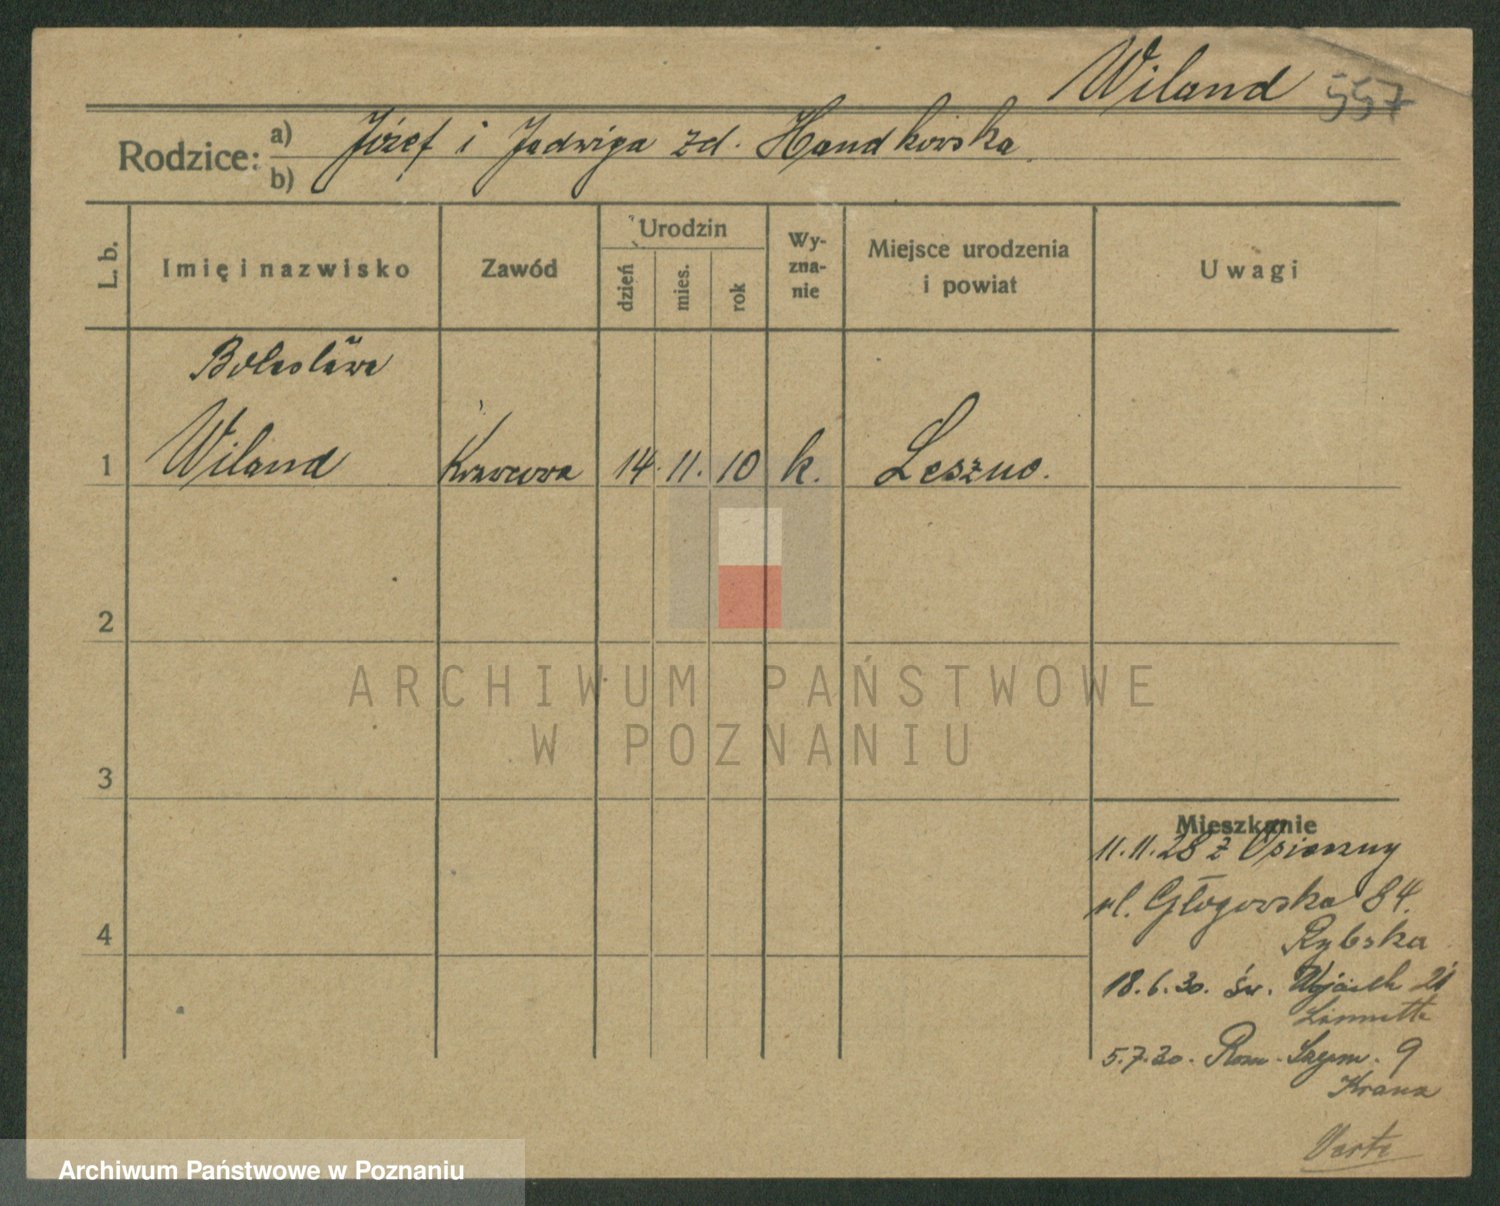 Wiland 557
Rodzice: a) Józef i Jadwiga zd. Handkowska
b)
L. b. Imię i nazwisko Zawód Urodzin dzień mies. rok Wy-zna-nie Miejsce urodzenia i powiat Uwagi
Bolesława
1 Wiland Krawcowa 14. 11. 10 k. Leszno.
2
3
4
Mieszkanie
11.11.28 z Osieczny
ul. Głogowska 84.
Rybska
18.6.30. św. Wojciech 21
5.7.30. Rom. Szym. 9
Kranz
Verte
ARCHIWUM PAŃSTWOWE
W POZNANIU
Archiwum Państwowe w Poznaniu